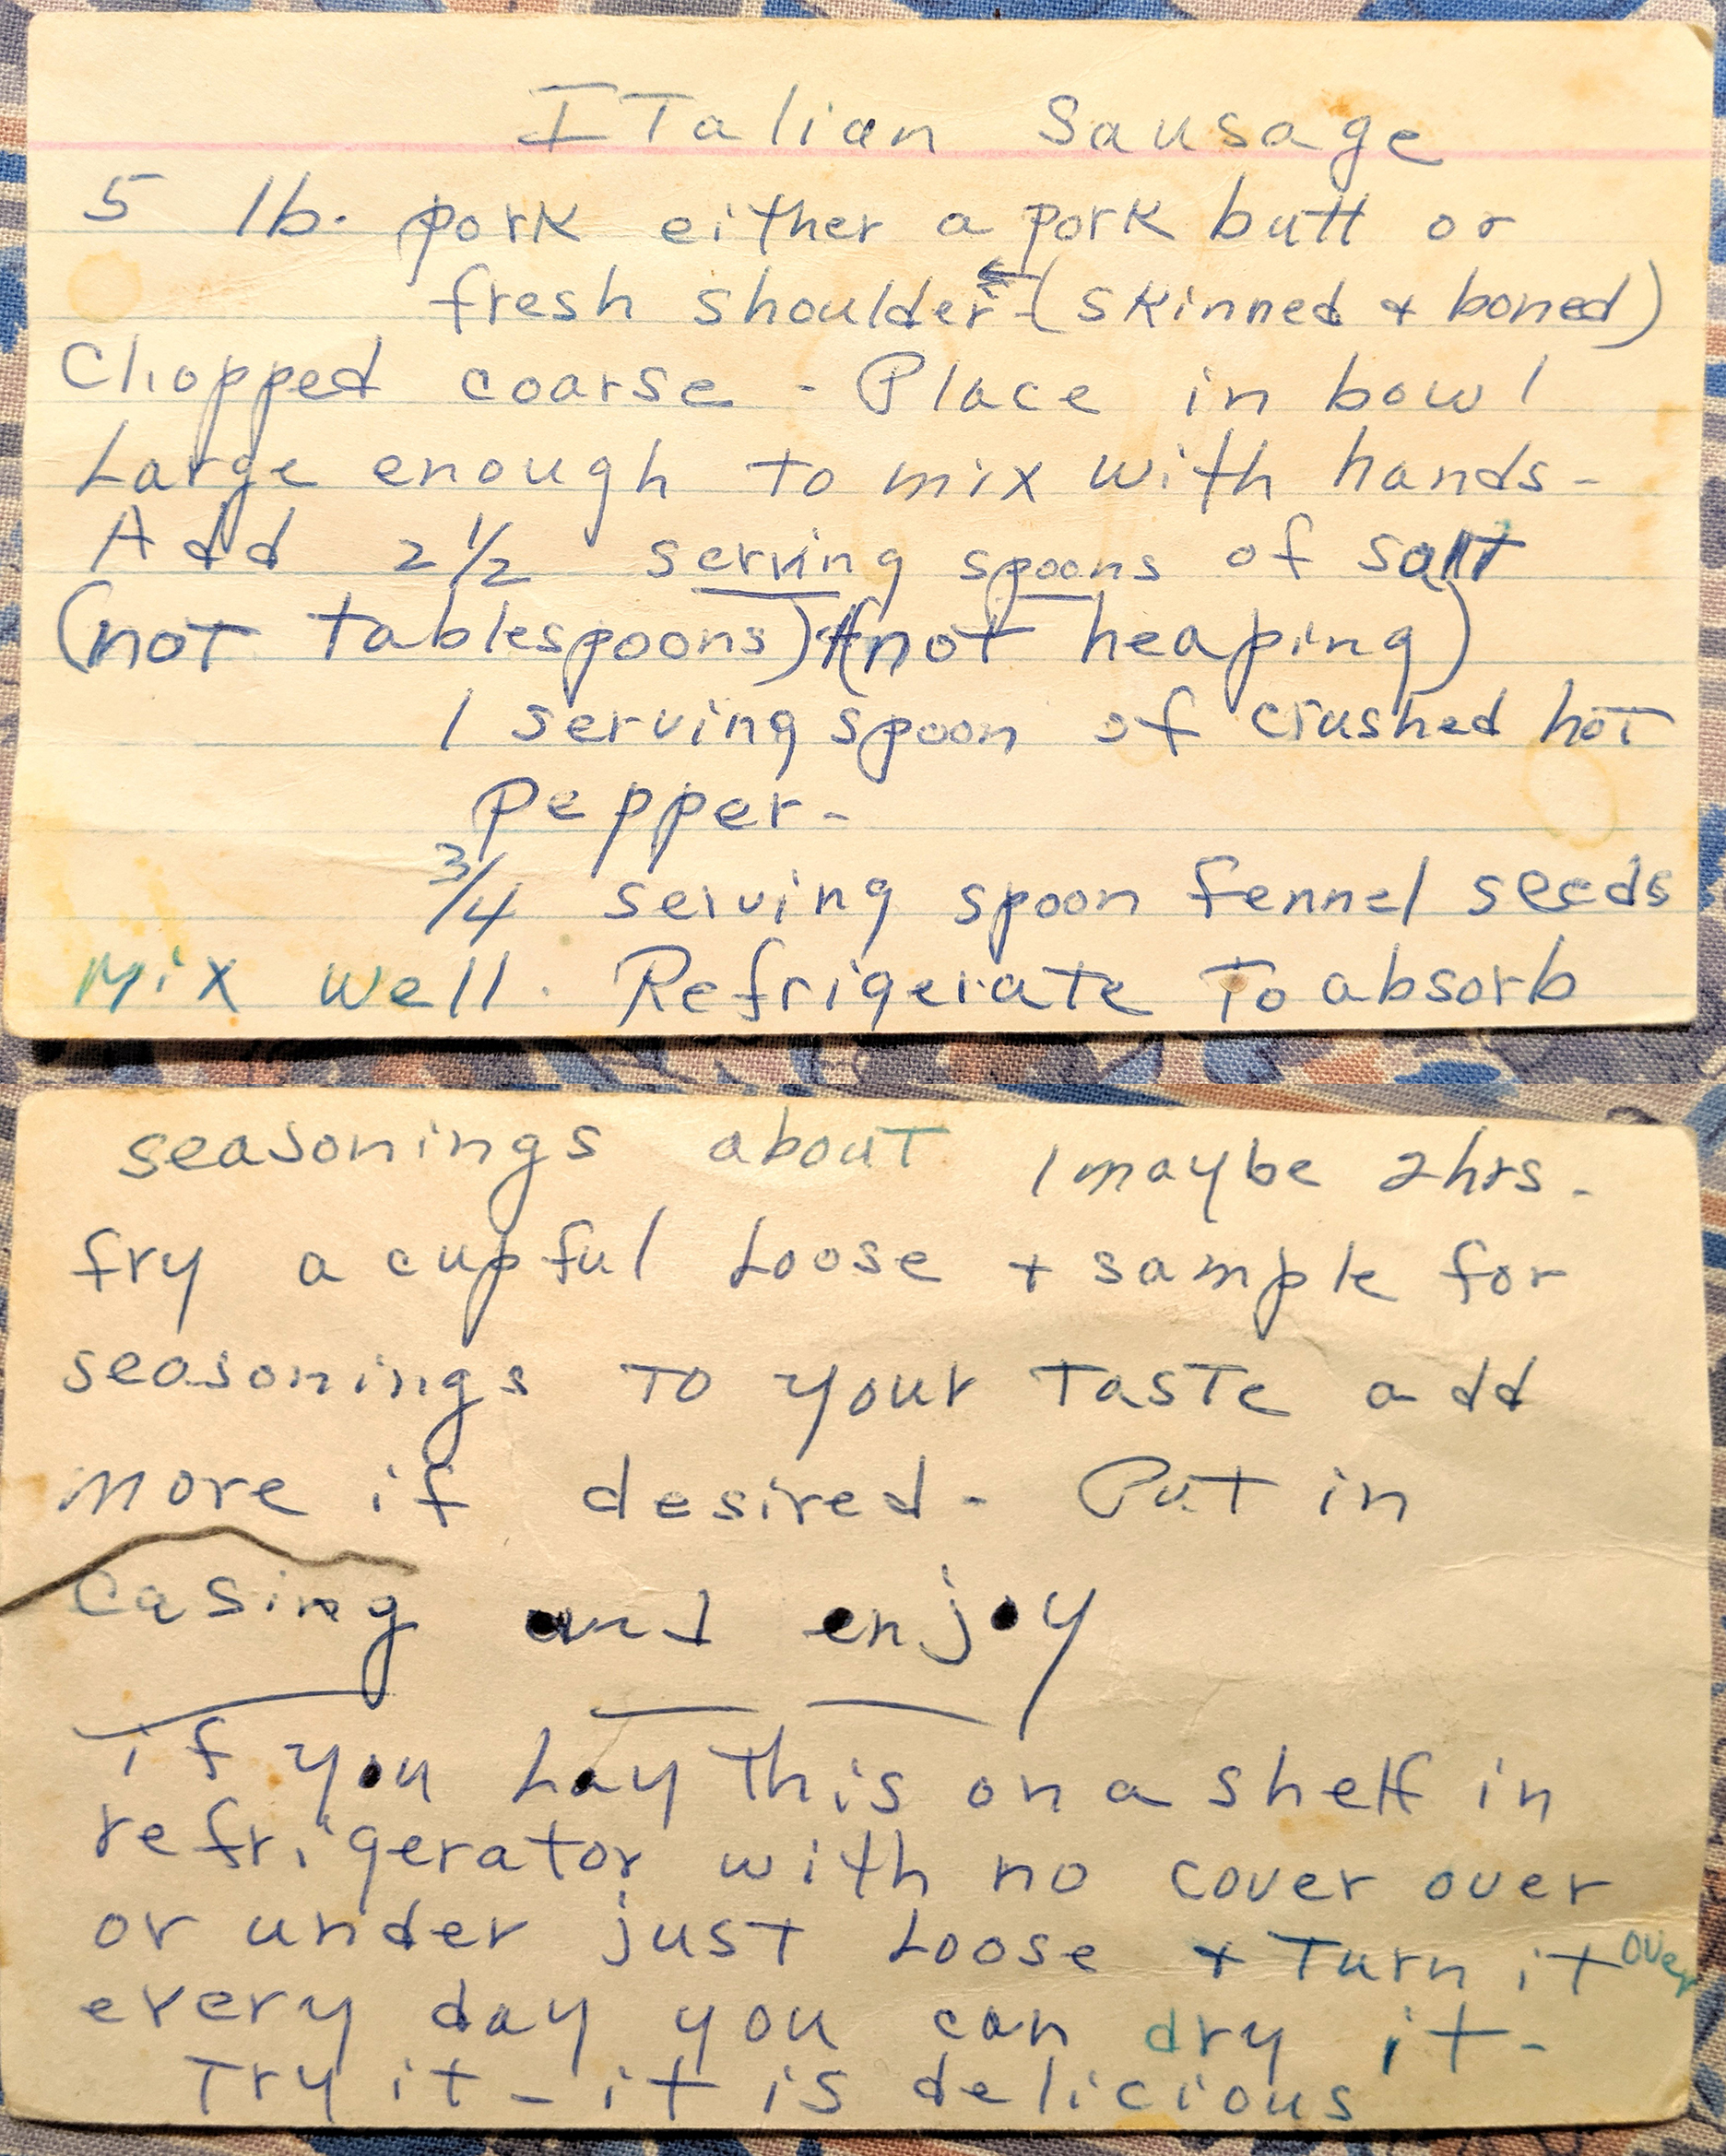 ITalian Sausage
5 lb. pork either a pork butt or
fresh shoulder ← (skinned + boned)
Chopped coarse - Place in bowl
Large enough to mix with hands-
Add 2 1/2 serving spoons of salt
(not tablespoons) (not heaping)
1 serving spoon of crushed hot
pepper-
3/4 serving spoon fennel seeds
Mix well. Refrigerate To absorb
seasonings about 1 maybe 2 hrs.
fry a cupful Loose + sample for
seasonings to your taste add
more if desired- Put in
Casing and enjoy
if you Lay this on a shelf in
refrigerator with no cover over
or under just Loose + Turn it over
every day you can dry it-
Try it - it is delicious